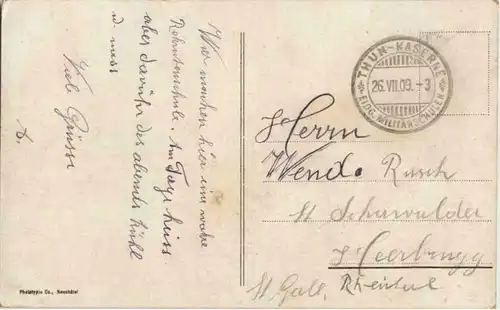 Wir machen hier eine wahre
Rekrutenschule. Am Tage heiss
aber dafür des abends kühl
u. nass
Viele Grüsse
THUN-KASERNE
26.VII.09.-3
EIDG. MILITÄRSCHULEN
Herrn
Wend. Rusch
St Schwalder
Heerbrugg
St Gall. Rheintal
Phototypie Co., Neuchâtel